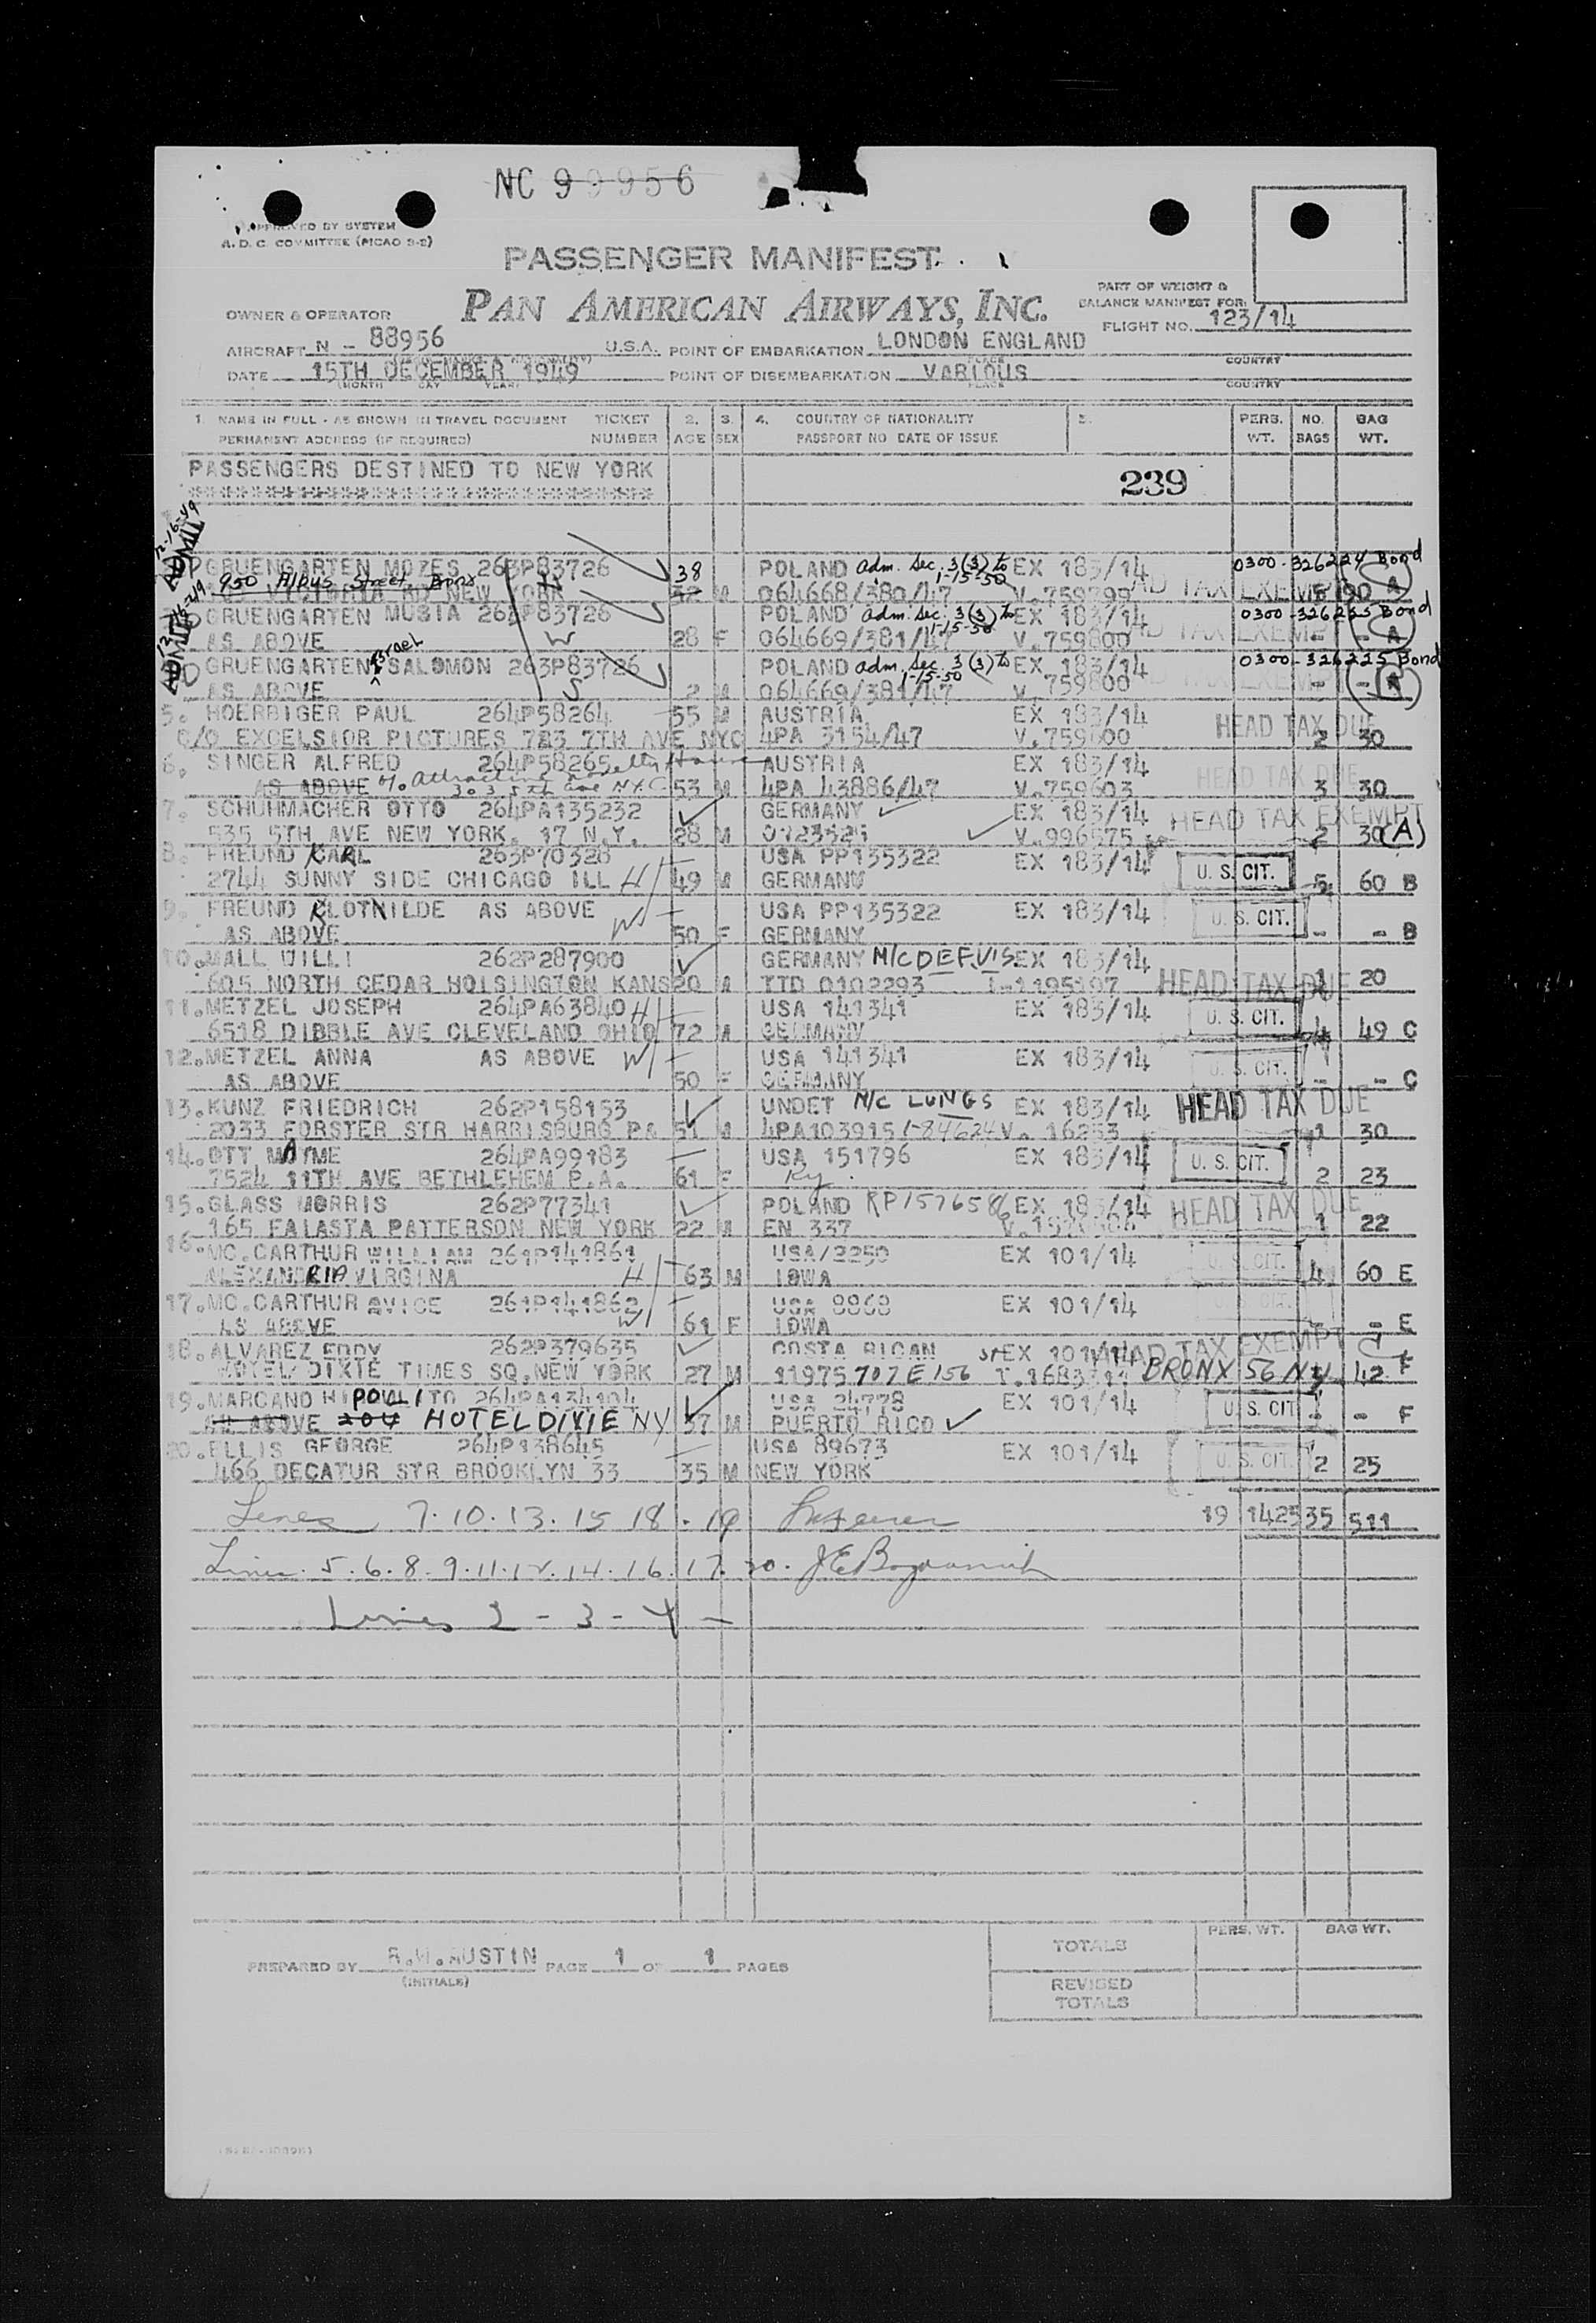 NC 99956
APPROVED BY SYSTEM
A. D. C. COMMITTEE (PICAO 9-2)
PASSENGER MANIFEST
OWNER & OPERATOR PAN AMERICAN AIRWAYS, INC.
PART OF WEIGHT &
BALANCE MANIFEST FOR:
FLIGHT NO. 123/14
AIRCRAFT N - 88956 U.S.A. POINT OF EMBARKATION LONDON ENGLAND
PLACE COUNTRY
DATE 15TH DECEMBER 1949 POINT OF DISEMBARKATION VARIOUS
(MONTH DAY YEAR) PLACE COUNTRY
1. NAME IN FULL - AS SHOWN IN TRAVEL DOCUMENT TICKET 2. 3. 4. COUNTRY OF NATIONALITY 5. PERS. NO. BAG
PERMANENT ADDRESS (IF REQUIRED) NUMBER AGE SEX PASSPORT NO DATE OF ISSUE WT. BAGS WT.
PASSENGERS DESTINED TO NEW YORK
239
GRUENGARTEN MOZES 263P83726 38 POLAND adm. Sec. 3(3) to 1-15-50 EX 183/14 0300-326224 Bond
950 Aldus Street, Bronx VICTORIA RD NEW YORK M 064668/380/47 V.759799 HEAD TAX EXEMPT 190 A
GRUENGARTEN MUSIA 263P83726 POLAND adm. Sec. 3(3) to 1-15-50 EX 183/14 0300-326265 Bond
AS ABOVE W 28 F 064669/381/47 V.759800 HEAD TAX EXEMPT - - A
GRUENGARTEN Israel SALOMON 263P83726 POLAND adm. Sec. 3(3) to 1-15-50 EX 183/14 0300-326225 Bond
AS ABOVE S 2 M 064669/381/47 V.759800 - - A
5. HOERBIGER PAUL 264P58264 55 M AUSTRIA EX 183/14 HEAD TAX DUE
C/O EXCELSIOR PICTURES 723 7TH AVE NYC 4PA 3154/47 V.759600 2 30
6. SINGER ALFRED 264P58265 AUSTRIA EX 183/14 HEAD TAX DUE
AS ABOVE c/o Attractive Novelty House 303 5th Ave N.Y.C. 53 M 4PA 43886/47 V.759603 3 30
7. SCHUHMACHER OTTO 264PA135232 GERMANY EX 183/14 HEAD TAX EXEMPT
535 5TH AVE NEW YORK. 17 N.Y. 28 M 0723521 V.996575 2 30 (A)
8. FREUND KARL 263P70328 USA PP135322 EX 183/14 U. S. CIT.
2744 SUNNY SIDE CHICAGO ILL H 49 M GERMANY 5 60 B
9. FREUND KLOTHILDE AS ABOVE USA PP135322 EX 183/14 U. S. CIT.
AS ABOVE W 50 F GERMANY - - B
10. MALL WILLI 262P287900 GERMANY M/C DEF. VIS EX 183/14
605 NORTH CEDAR HOISINGTON KANS 20 M TTD 0102293 I-1195197 HEAD TAX DUE 1 20
11. METZEL JOSEPH 264PA63840 H USA 141341 EX 183/14 U. S. CIT.
6518 DIBBLE AVE CLEVELAND OHIO 72 M GERMANY 4 49 C
12. METZEL ANNA AS ABOVE W USA 141341 EX 183/14 U. S. CIT.
AS ABOVE 50 F GERMANY - - C
13. KUNZ FRIEDRICH 262P158153 UNDET M/C LUNGS EX 183/14 HEAD TAX DUE
2033 FORSTER STR HARRISBURG PA 51 M 4PA103915 I-84624 V. 16253 1 30
14. OTT MAYME 264PA99183 USA 151796 EX 183/14 U. S. CIT.
7524 11TH AVE BETHLEHEM P.A. 61 F Ky. 2 23
15. GLASS MORRIS 262P77341 POLAND RP1576586 EX 183/14 HEAD TAX DUE
165 FALASTA PATTERSON NEW YORK 22 M EN 337 1 22
16. MC.CARTHUR WILLIAM 261P141861 USA/2250 EX 101/14 U. S. CIT.
ALEXANDRIA VIRGINA H 63 M IOWA 4 60 E
17. MC.CARTHUR AVICE 261P141862 USA 8868 EX 101/14 U. S. CIT.
AS ABOVE W 61 F IOWA - - E
18. ALVAREZ EDDY 262P379635 COSTA RICAN EX 101/14 HEAD TAX EXEMPT
HOTEL DIXIE TIMES SQ. NEW YORK 27 M 11975 707 E 156 ST BRONX 56 NY 42 F
19. MARCANO HIPOLITO 264PA134104 USA 24778 EX 101/14 U. S. CIT.
AS ABOVE 204 HOTEL DIXIE NY 37 M PUERTO RICO - - F
20. ELLIS GEORGE 264P138645 USA 89673 EX 101/14 U. S. CIT.
466 DECATUR STR BROOKLYN 33 35 M NEW YORK 2 25
Lines 7.10.13.15 18.19 19 1425 35 511
Lines 5.6.8.9.11.12.14.16.17.20.
Lines 2 - 3 - 4 -
PREPARED BY R.W.AUSTIN PAGE 1 OF 1 PAGES
(INITIALS)
PERS. WT. BAG WT.
TOTALS
REVISED
TOTALS